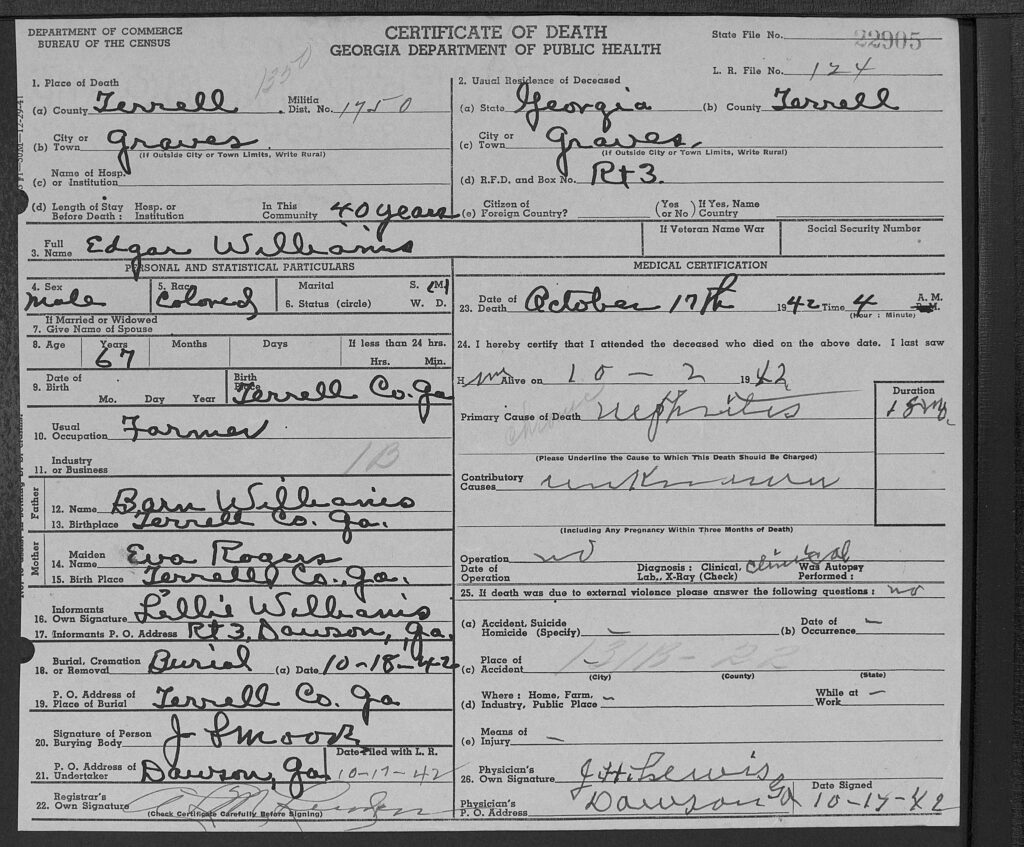 DEPARTMENT OF COMMERCE
BUREAU OF THE CENSUS
CERTIFICATE OF DEATH
GEORGIA DEPARTMENT OF PUBLIC HEALTH
State File No. 22905
L. R. File No. 124
1350
1. Place of Death
(a) County Terrell. Militia Dist. No. 1750
(b) City or Town Graves.
(If Outside City or Town Limits, Write Rural)
(c) Name of Hosp. or Institution
(d) Length of Stay Before Death: Hosp. or Institution In This Community 40 years
2. Usual Residence of Deceased
(a) State Georgia (b) County Terrell
(c) City or Town Graves,
(If Outside City or Town Limits, Write Rural)
(d) R.F.D. and Box No. Rt 3.
(e) Citizen of Foreign Country? (Yes or No) If Yes, Name Country
3. Full Name Edgar Williams
If Veteran Name War
Social Security Number
PERSONAL AND STATISTICAL PARTICULARS
4. Sex Male
5. Race Colored
6. Marital Status (circle) S. M. W. D.
7. If Married or Widowed Give Name of Spouse
8. Age Years 67 Months Days If less than 24 hrs. Hrs. Min.
9. Date of Birth Mo. Day Year Birth Place Terrell Co. Ga
10. Usual Occupation Farmer
11. Industry or Business 1B
Father
12. Name Barn Williams
13. Birthplace Terrell Co. Ga.
Mother
14. Maiden Name Eva Rogers
15. Birth Place Terrell Co., Ga.
16. Informants Own Signature Lillie Williams
17. Informants P. O. Address Rt 3, Dawson, Ga.
18. Burial, Cremation or Removal Burial (a) Date 10-18-42
19. P. O. Address of Place of Burial Terrell Co. Ga
20. Signature of Person Burying Body J Smoock
21. P. O. Address of Undertaker Dawson, Ga. Date Filed with L. R. 10-17-42
22. Registrar's Own Signature
(Check Certificate Carefully Before Signing)
MEDICAL CERTIFICATION
23. Date of Death October 17th 1942 Time 4 A. M. P. M.
(Hour : Minute)
24. I hereby certify that I attended the deceased who died on the above date. I last saw
H im Alive on 10 - 2 1942
Duration
Primary Cause of Death chronic nephritis 18 mo.
(Please Underline the Cause to Which This Death Should Be Charged)
Contributory Causes unknown
(Including Any Pregnancy Within Three Months of Death)
Operation no
Date of Operation
Diagnosis: Clinical, Lab., X-Ray (Check) clinical Was Autopsy Performed:
25. If death was due to external violence please answer the following questions: no
(a) Accident, Suicide Homicide (Specify) - (b) Date of Occurrence -
(c) Place of Accident - 131B-22
(City) (County) (State)
(d) Where: Home, Farm, Industry, Public Place - While at Work -
(e) Means of Injury -
26. Physician's Own Signature J.H. Lewis
Physician's P. O. Address Dawson Ga Date Signed 10-17-42